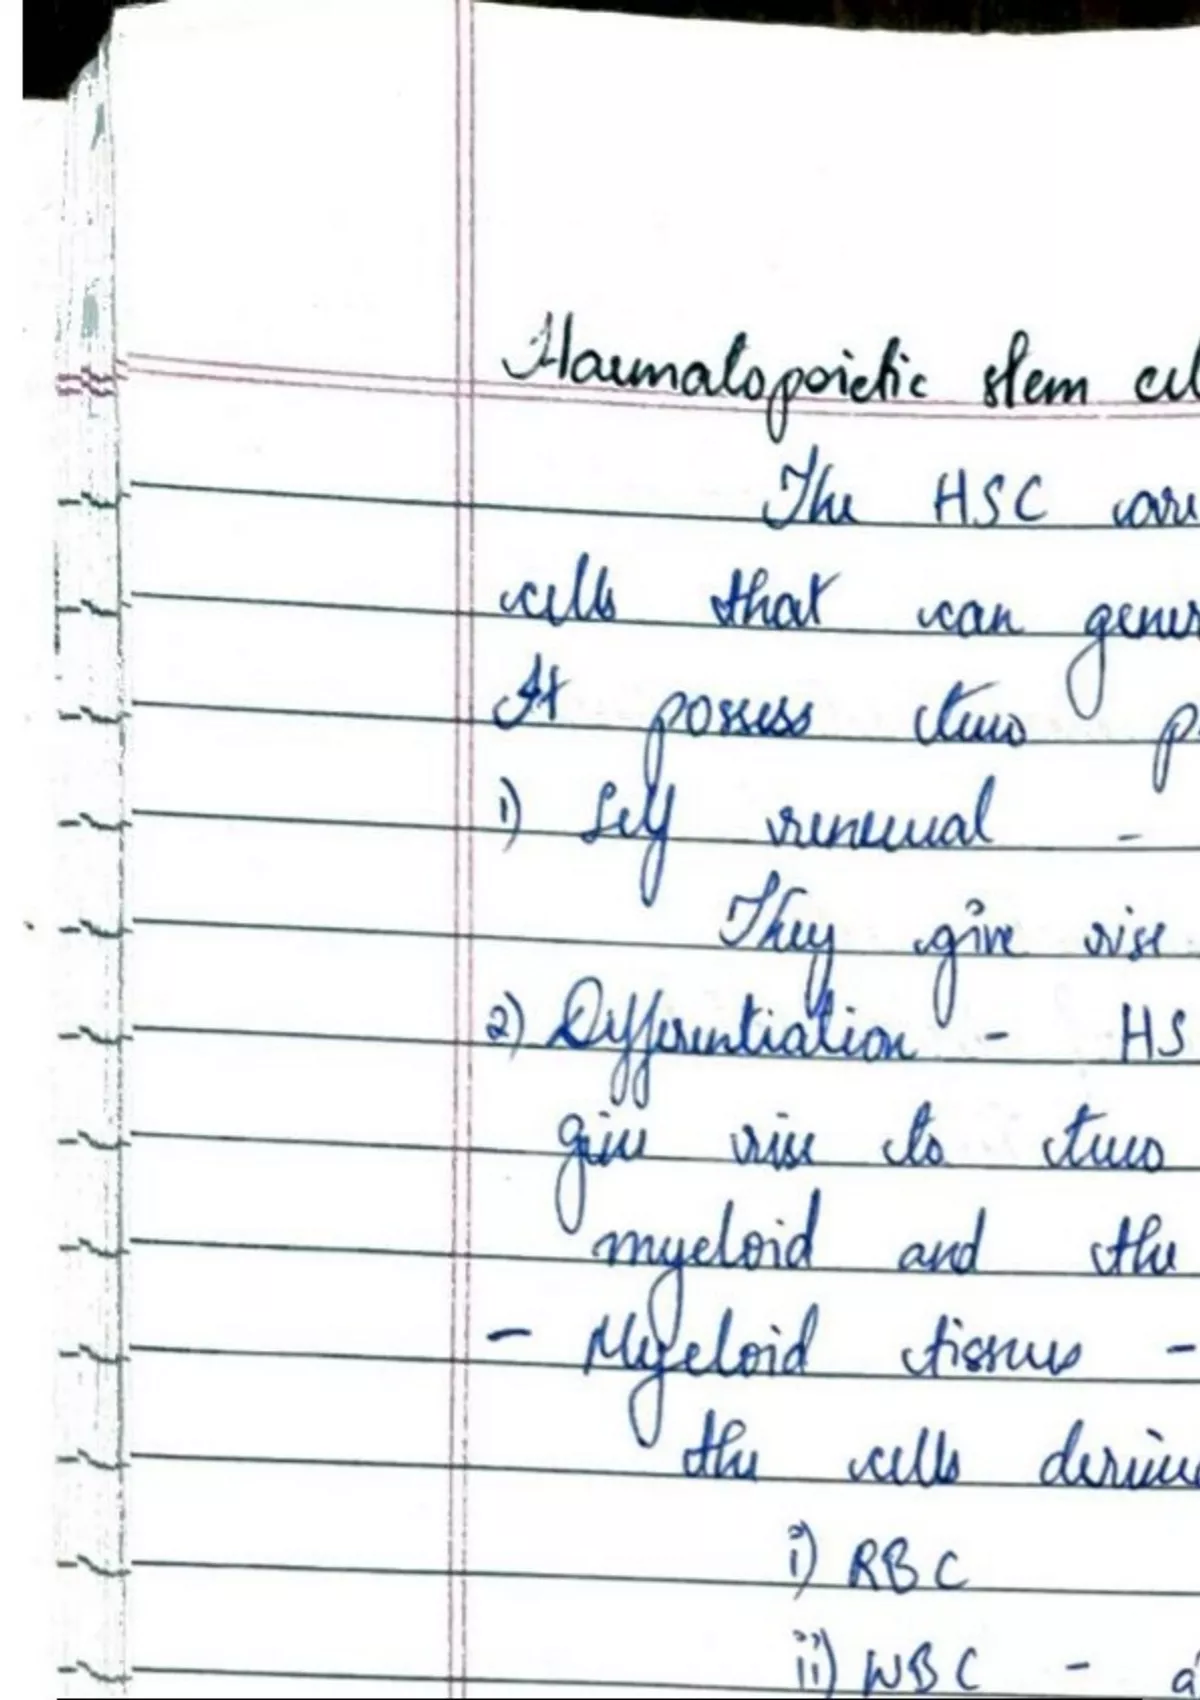 Haematopoietic stem cel
The HSC are
cells that can gener
It possess two p
1) Self renewal -
They give rise
2) Differentiation - HS
give rise to two
myeloid and the
- Myeloid tissues -
the cells derive
i) RBC
ii) WBC - a